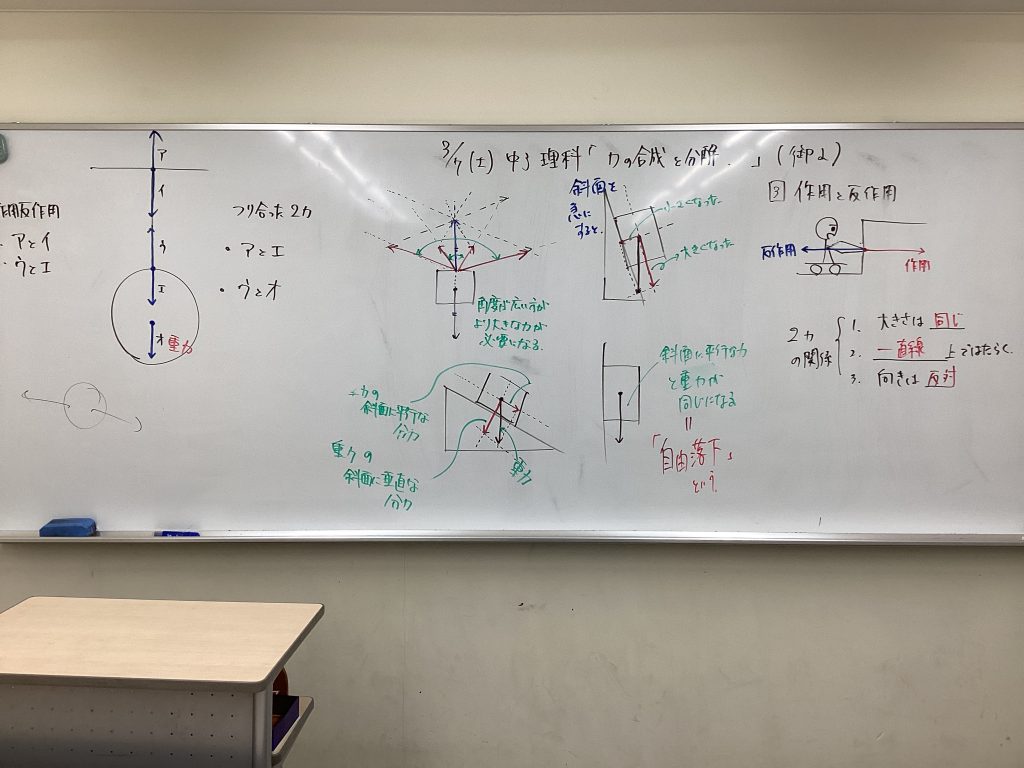 3/7(土) 中3 理科「力の合成と分解.」(御上)
作用反作用
・アとイ
・ウとエ
ア
イ
ウ
エ
オ
重力
つり合った2力
・アとエ
・ウとオ
角度が広い方が
より大きな力が
必要になる.
力の
斜面に平行な
分力
重力の
斜面に垂直な
分力
重力
斜面を
急に
すると.
小さくなった
大きくなった
斜面に平行な力
と重力が
同じになる
=
「自由落下」
という
3 作用と反作用
反作用
作用
2力
の関係
1. 大きさは 同じ
2. 一直線 上ではたらく.
3. 向きは 反対